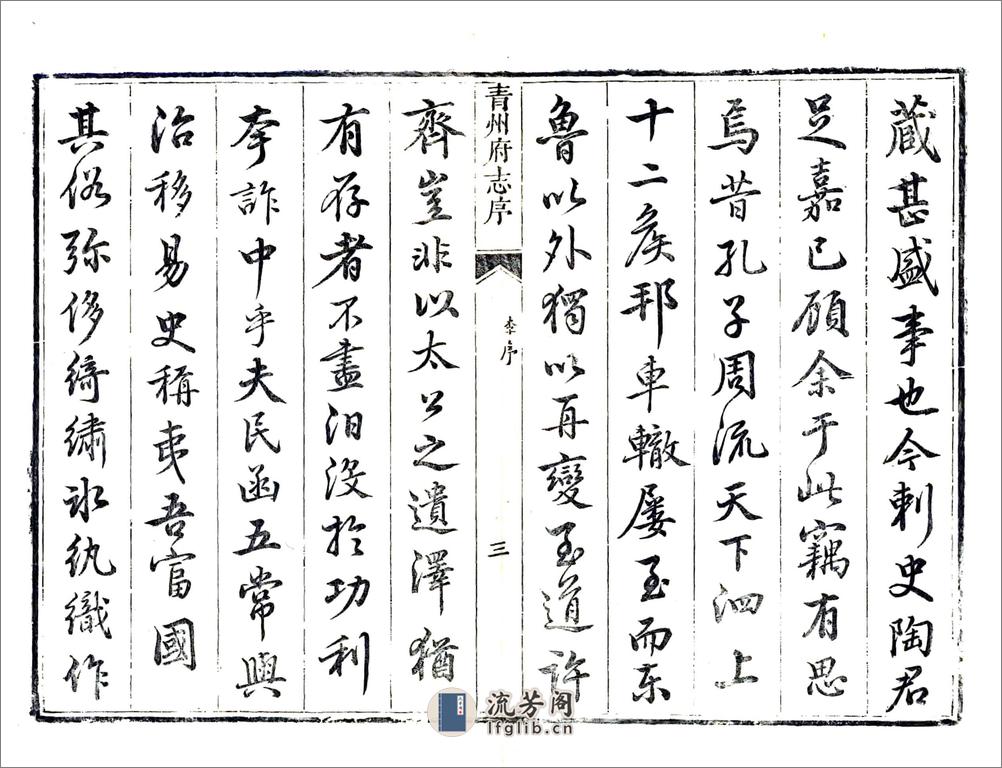 蔵甚盛事也今刺史陶君
足嘉已顧余于此竊有思
焉昔孔子周流天下泗上
十二侯邦車轍屡至而东
魯以外獨以再變至道許
青州府志序
李序
三
齊豈非以太公之遺澤猶
有存者不盡汨没於功利
夸詐中乎夫民函五常與
治移易史稱夷吾富國
其俗弥侈綺繡冰紈織作
流芳阁
lfglib.cn